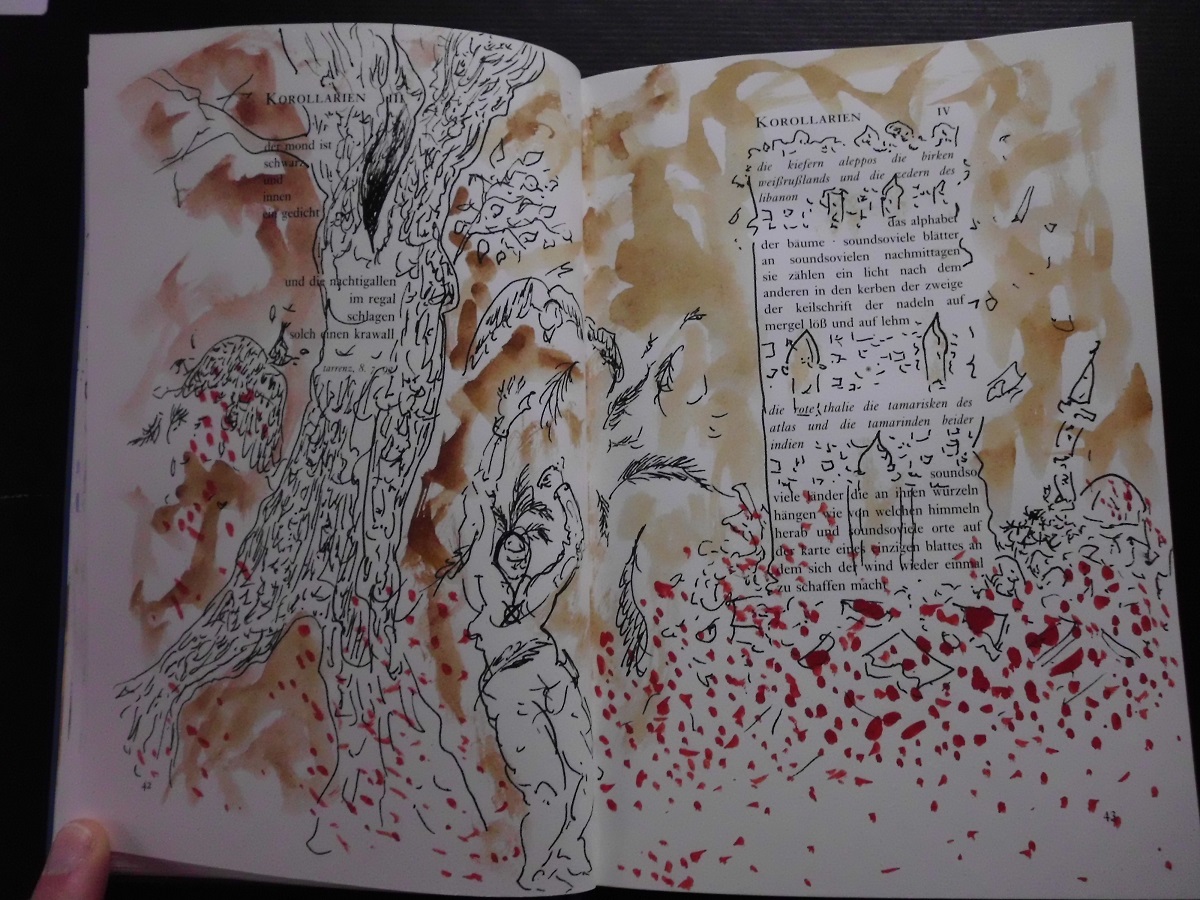 KOROLLARIEN III
der mond ist
schwarz
und
innen
ein gedicht
und die nachtigallen
im regal
schlagen
solch einen krawall
tarrenz, 8. 7.
42
KOROLLARIEN IV
die kiefern aleppos die birken
weißrußlands und die zedern des
libanon
das alphabet
der bäume · soundsoviele blätter
an soundsovielen nachmittagen
sie zählen ein licht nach dem
anderen in den kerben der zweige
der keilschrift der nadeln auf
mergel löß und auf lehm
die rote thalie die tamarisken des
atlas und die tamarinden beider
indien
soundso
viele länder die an ihren wurzeln
hängen wie von welchen himmeln
herab und soundsoviele orte auf
der karte eines einzigen blattes an
dem sich der wind wieder einmal
zu schaffen macht
43